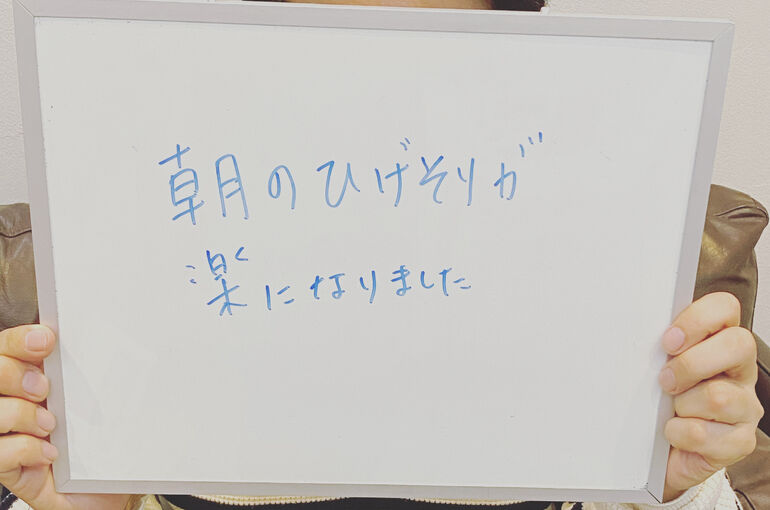 朝のひげそりが
楽になりました